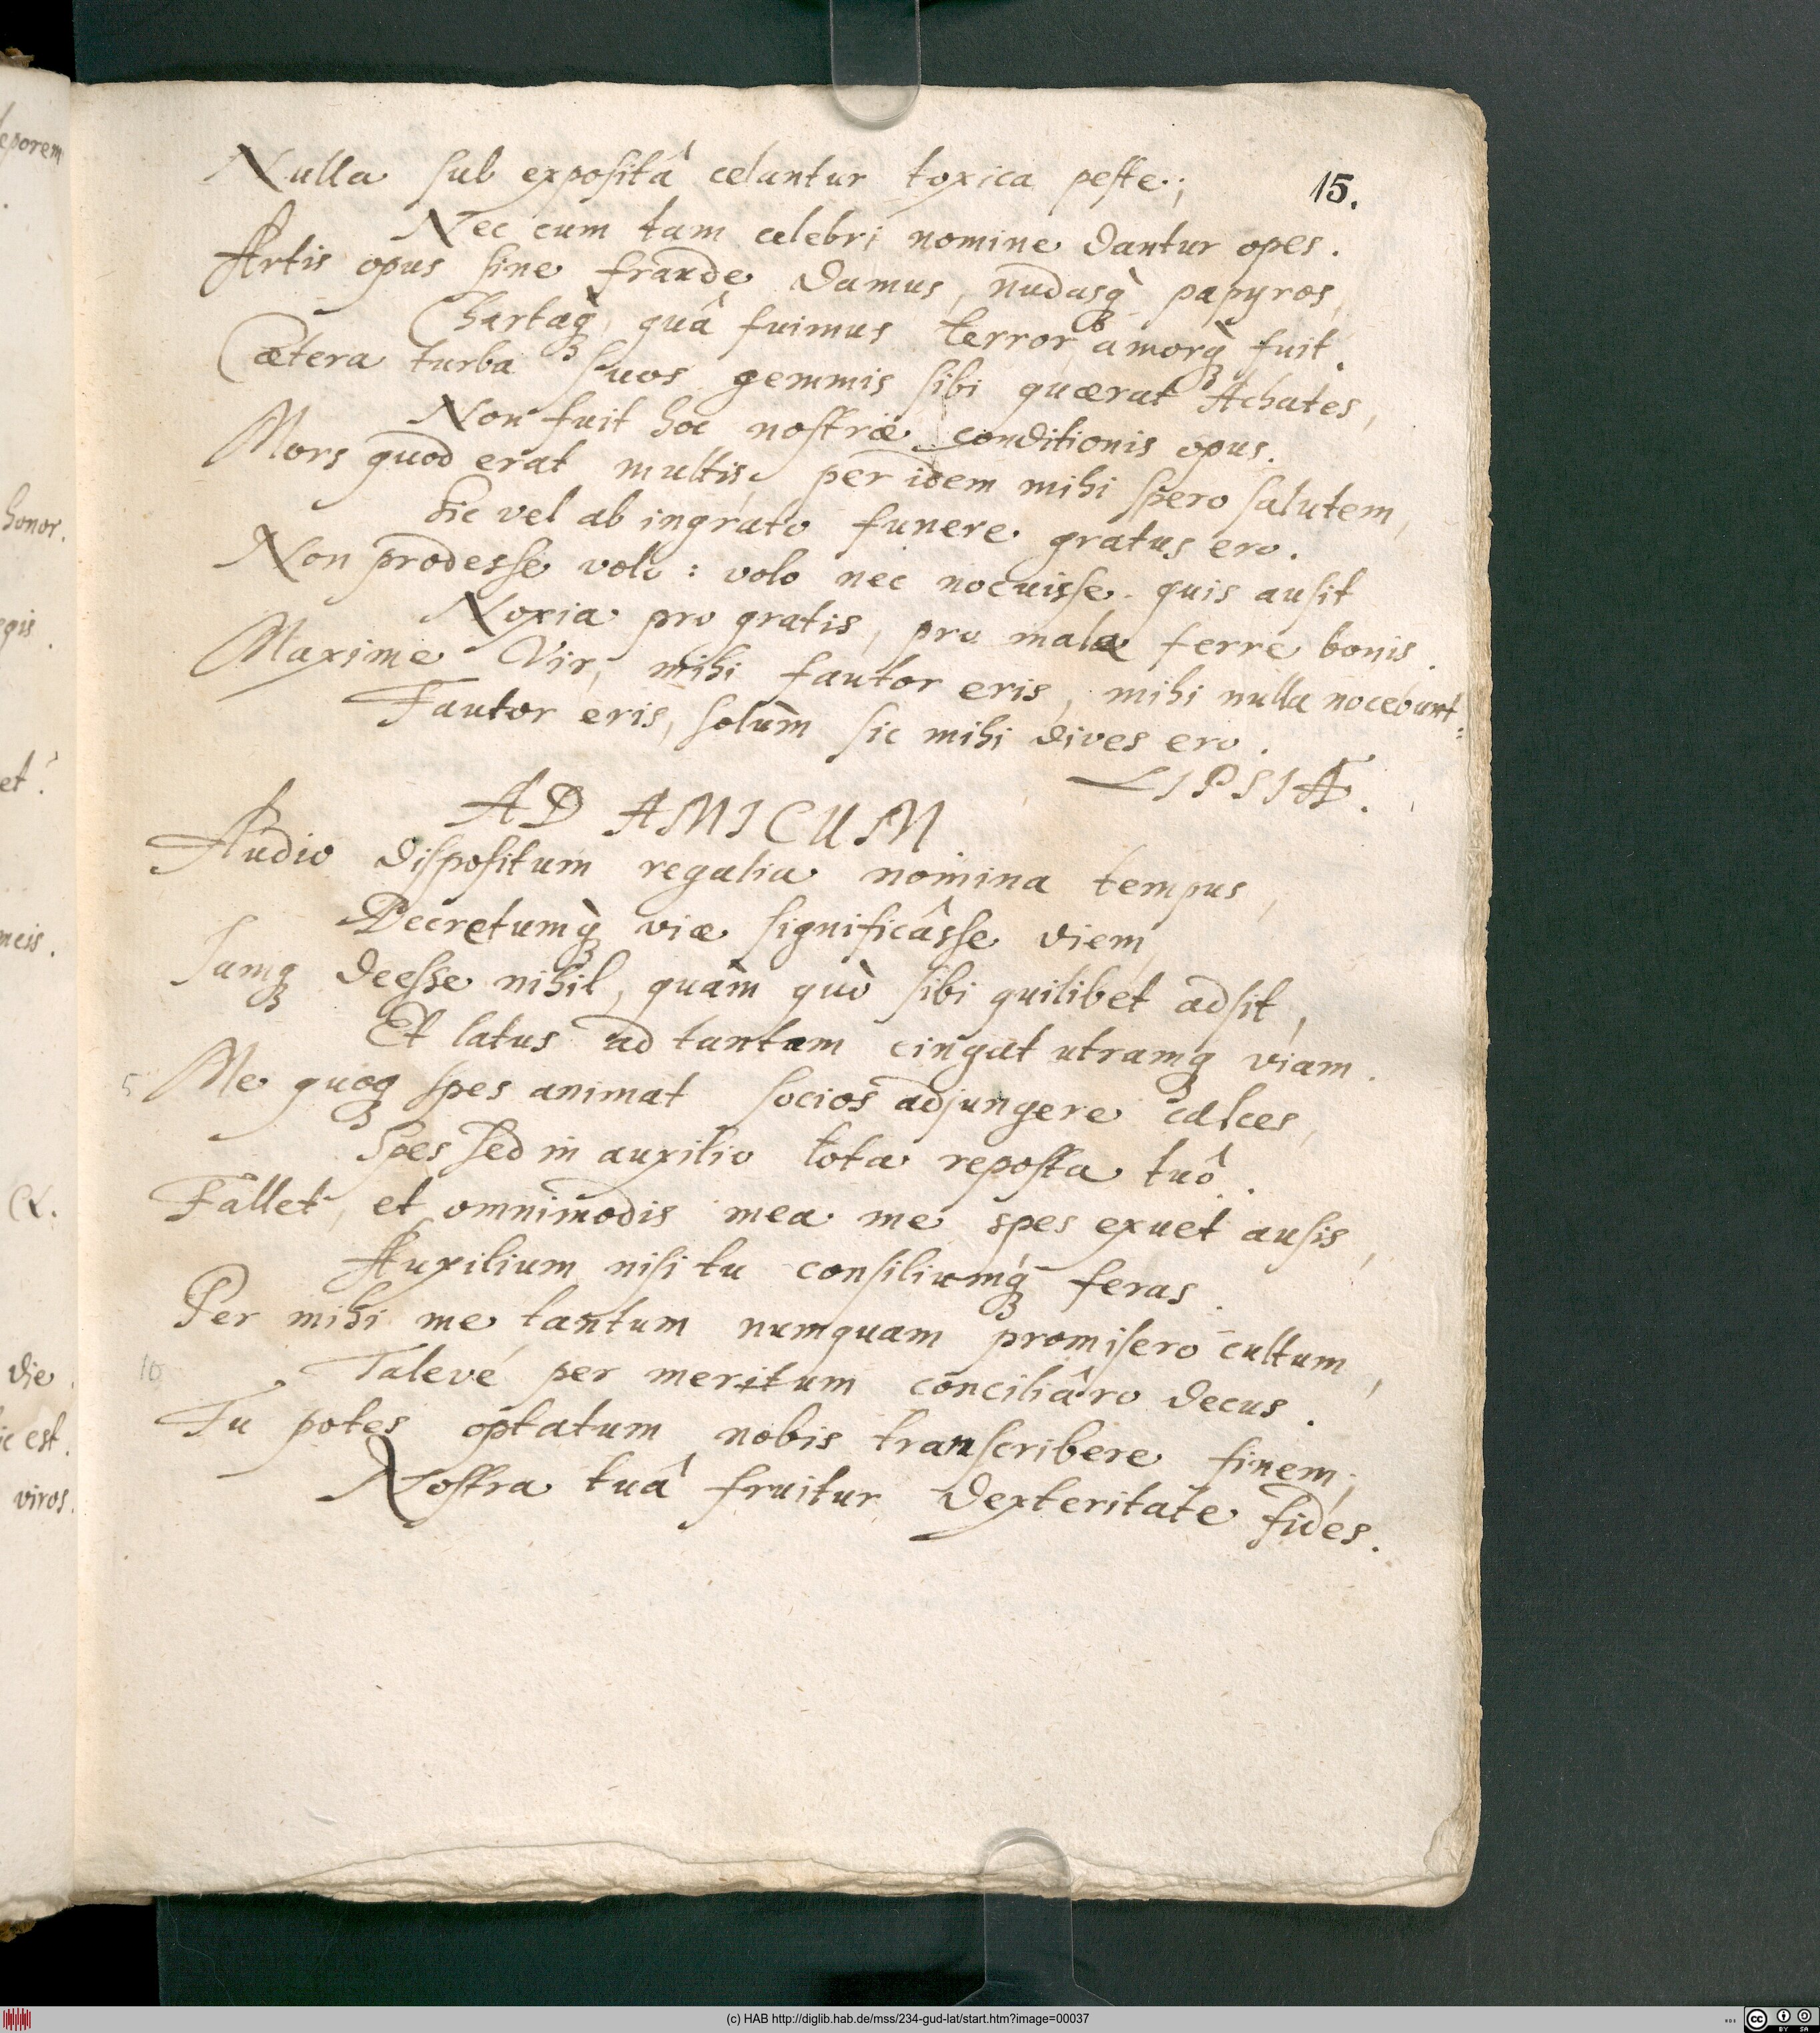 15.
Nulla sub expositâ celantur toxica peste;
Nec cum tam celebri nomine dantur opes.
Artis opus sine fraude damus, nudasq̀ꝫ papyros,
Chartaq̀ꝫ, quâ fuimus terror amorq̀ꝫ fuit.
Cætera turba suos gemmis sibi quærat Achates,
Non fuit hoc nostræ conditionis opus.
Mors quod erat multis, per idem mihi spero salutem,
Sic vel ab ingrato funere gratus ero.
Non prodesse volo: volo nec nocuisse. quis ausit
Noxia pro gratis, pro mala ferre bonis.
Maxime Vir, mihi fautor eris, mihi nulla nocebunt:
Fautor eris, solùm sic mihi dives ero.
LIPSIÆ.
AD AMICUM
Audio dispositum regalia nomina tempus,
Decretumq̀ꝫ viæ significâsse diem,
Iamqꝫ deesse nihil, quàm quò sibi quilibet adsit,
Et latus ad tantam cingat utramqꝫ viam.
5 Me quoqꝫ spes animat socios adjungere calces,
Spes sed in auxilio tota reposta tuô.
Fallet, et omnimodis mea me spes exuet ausis,
Auxilium nisi tu consiliumq́ꝫ feras.
Per mihi me tantum numquam promisero cultum,
10 Talevé per meritum conciliâro decus.
Tu potes optatum nobis transcribere finem;
Nostra tuâ fruitur dexteritate fides.
eporem
honor.
egis.
et?
meis.
die.
ic est.
viros.
(c) HAB http://diglib.hab.de/mss/234-gud-lat/start.htm?image=00037
cc BY SA